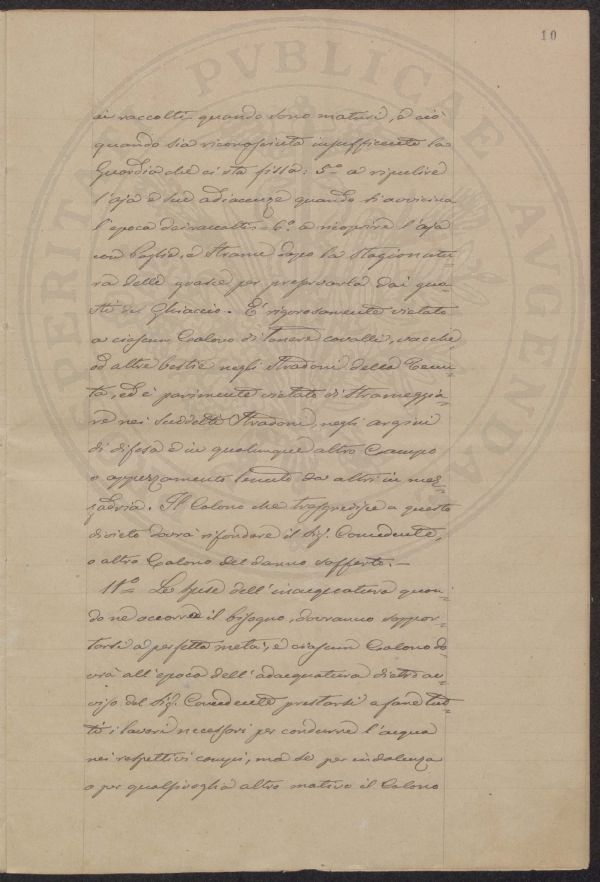 10
PROSPERITATI PVBLICAE AVGENDAE
ai raccolti quando sono maturi, e ciò
quando sia riconosciuta insufficiente la
Guardia che ci sta fissa: 5.º a ripulire
l'aja e sue adiacenze quando si avvicina
l'epoca dei raccolti - 6.º a ricoprire l'aja
con Paglia, o Strame dopo la Stagionatu-
ra delle grasce per preservarla dai gua-
sti del Ghiaccio. - È rigorosamente vietato
a ciascun Colono di tenere cavalli, vacche,
od altre bestie negli Stradoni della Tenu-
ta, ed è parimente vietato di Strameggia-
re nei suddetti Stradoni, negli argini
di difesa e in qualunque altro Campo
o appezzamento tenuto da altri in mez-
zadria. Il Colono che trasgredisce a questo
divieto dovrà rifondere il Sig. Concedente,
o altro Colono del danno sofferto. -
11º Le spese dell'inacquatura quan-
do ne occorre il bisogno, dovranno soppor-
tarsi a perfetta metà, e ciascun Colono do-
vrà all'epoca dell'adacquatura dietro av-
viso del Sig. Concedente prestarsi a fare tut-
ti i lavori necessari per condurre l'acqua
nei respettivi campi, ma se per indolenza
o per qualsivoglia altro motivo il Colono